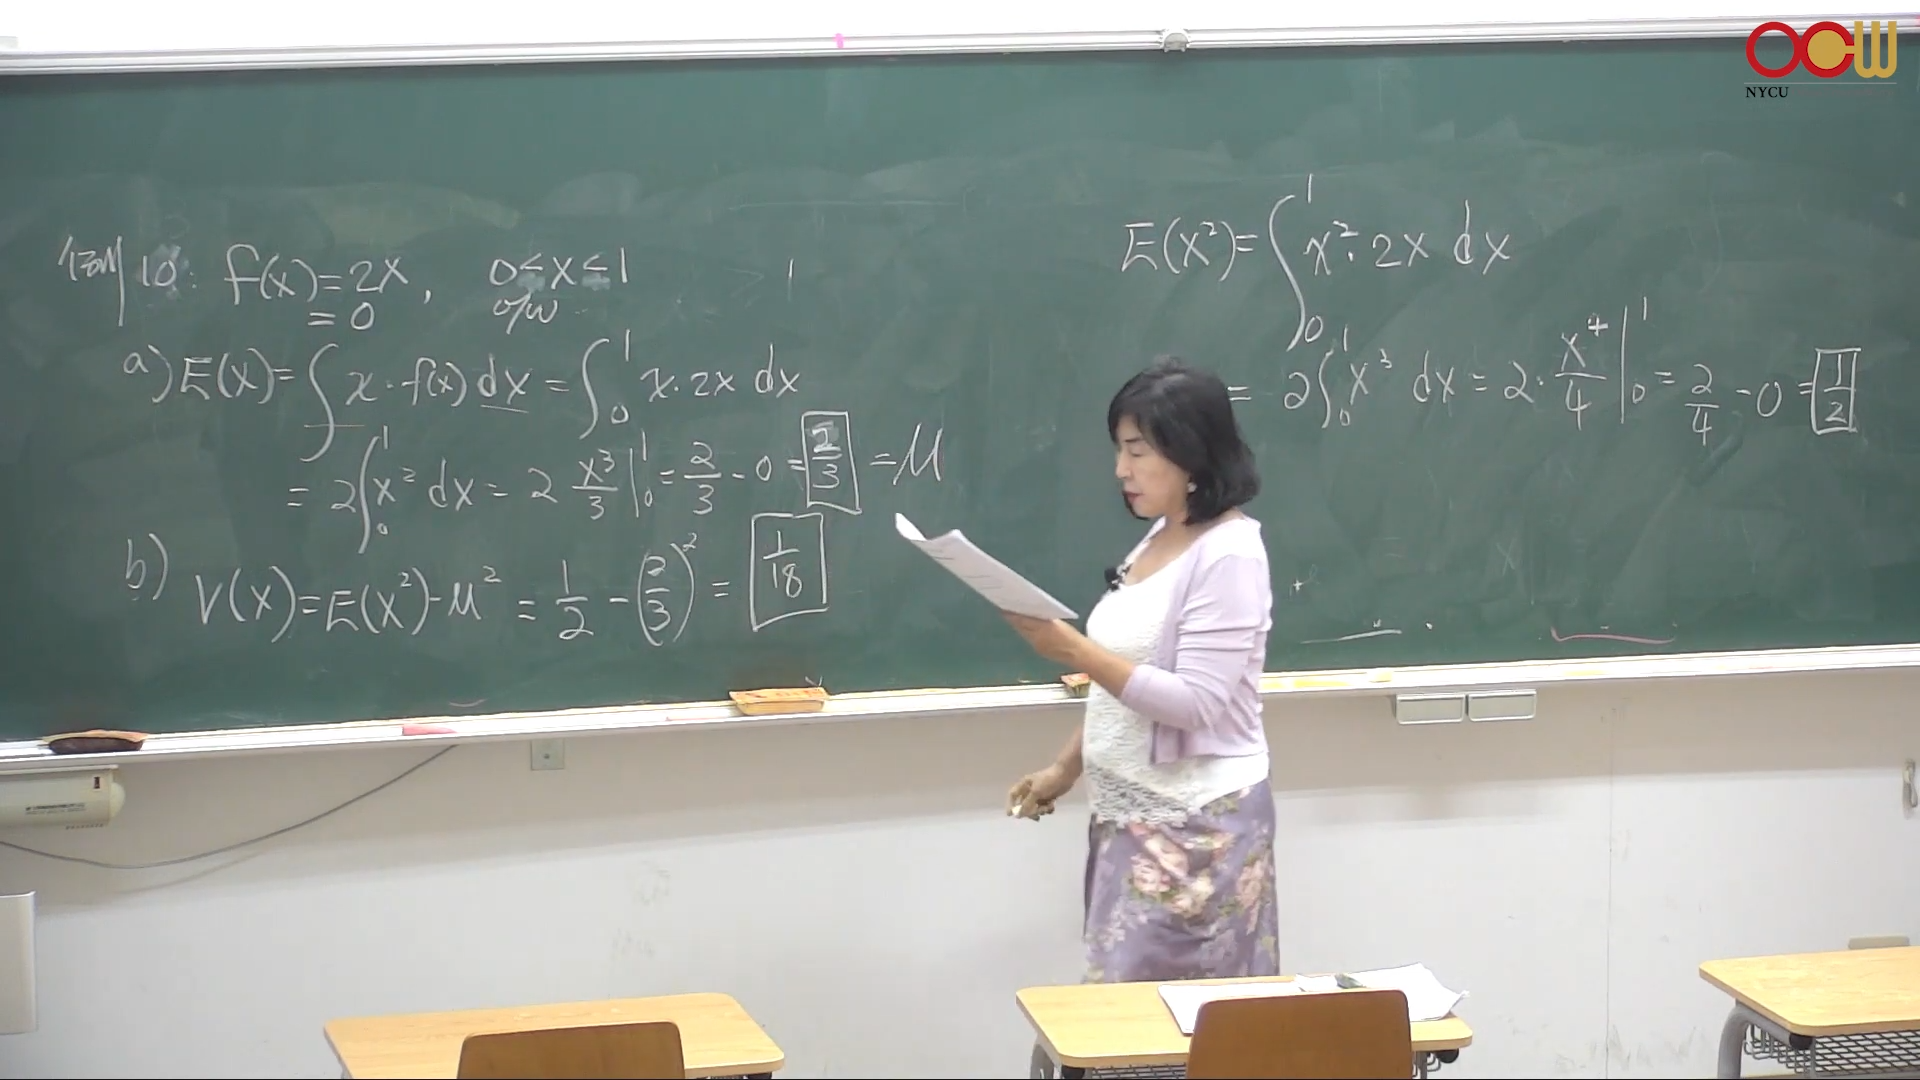 例 10: f(x)=2x, 0≤x≤1
=0 o/w
a) E(x)=∫x·f(x) dx = ∫₀¹ x·2x dx
= 2∫₀¹ x² dx = 2 x³/3 |₀¹ = 2/3 - 0 = 2/3 = μ
b) V(X)=E(X²)-μ² = 1/2 - (2/3)² = 1/18
E(X²)=∫₀¹ x²·2x dx
= 2∫₀¹ x³ dx = 2·x⁴/4 |₀¹ = 2/4 - 0 = 1/2
OCW
NYCU